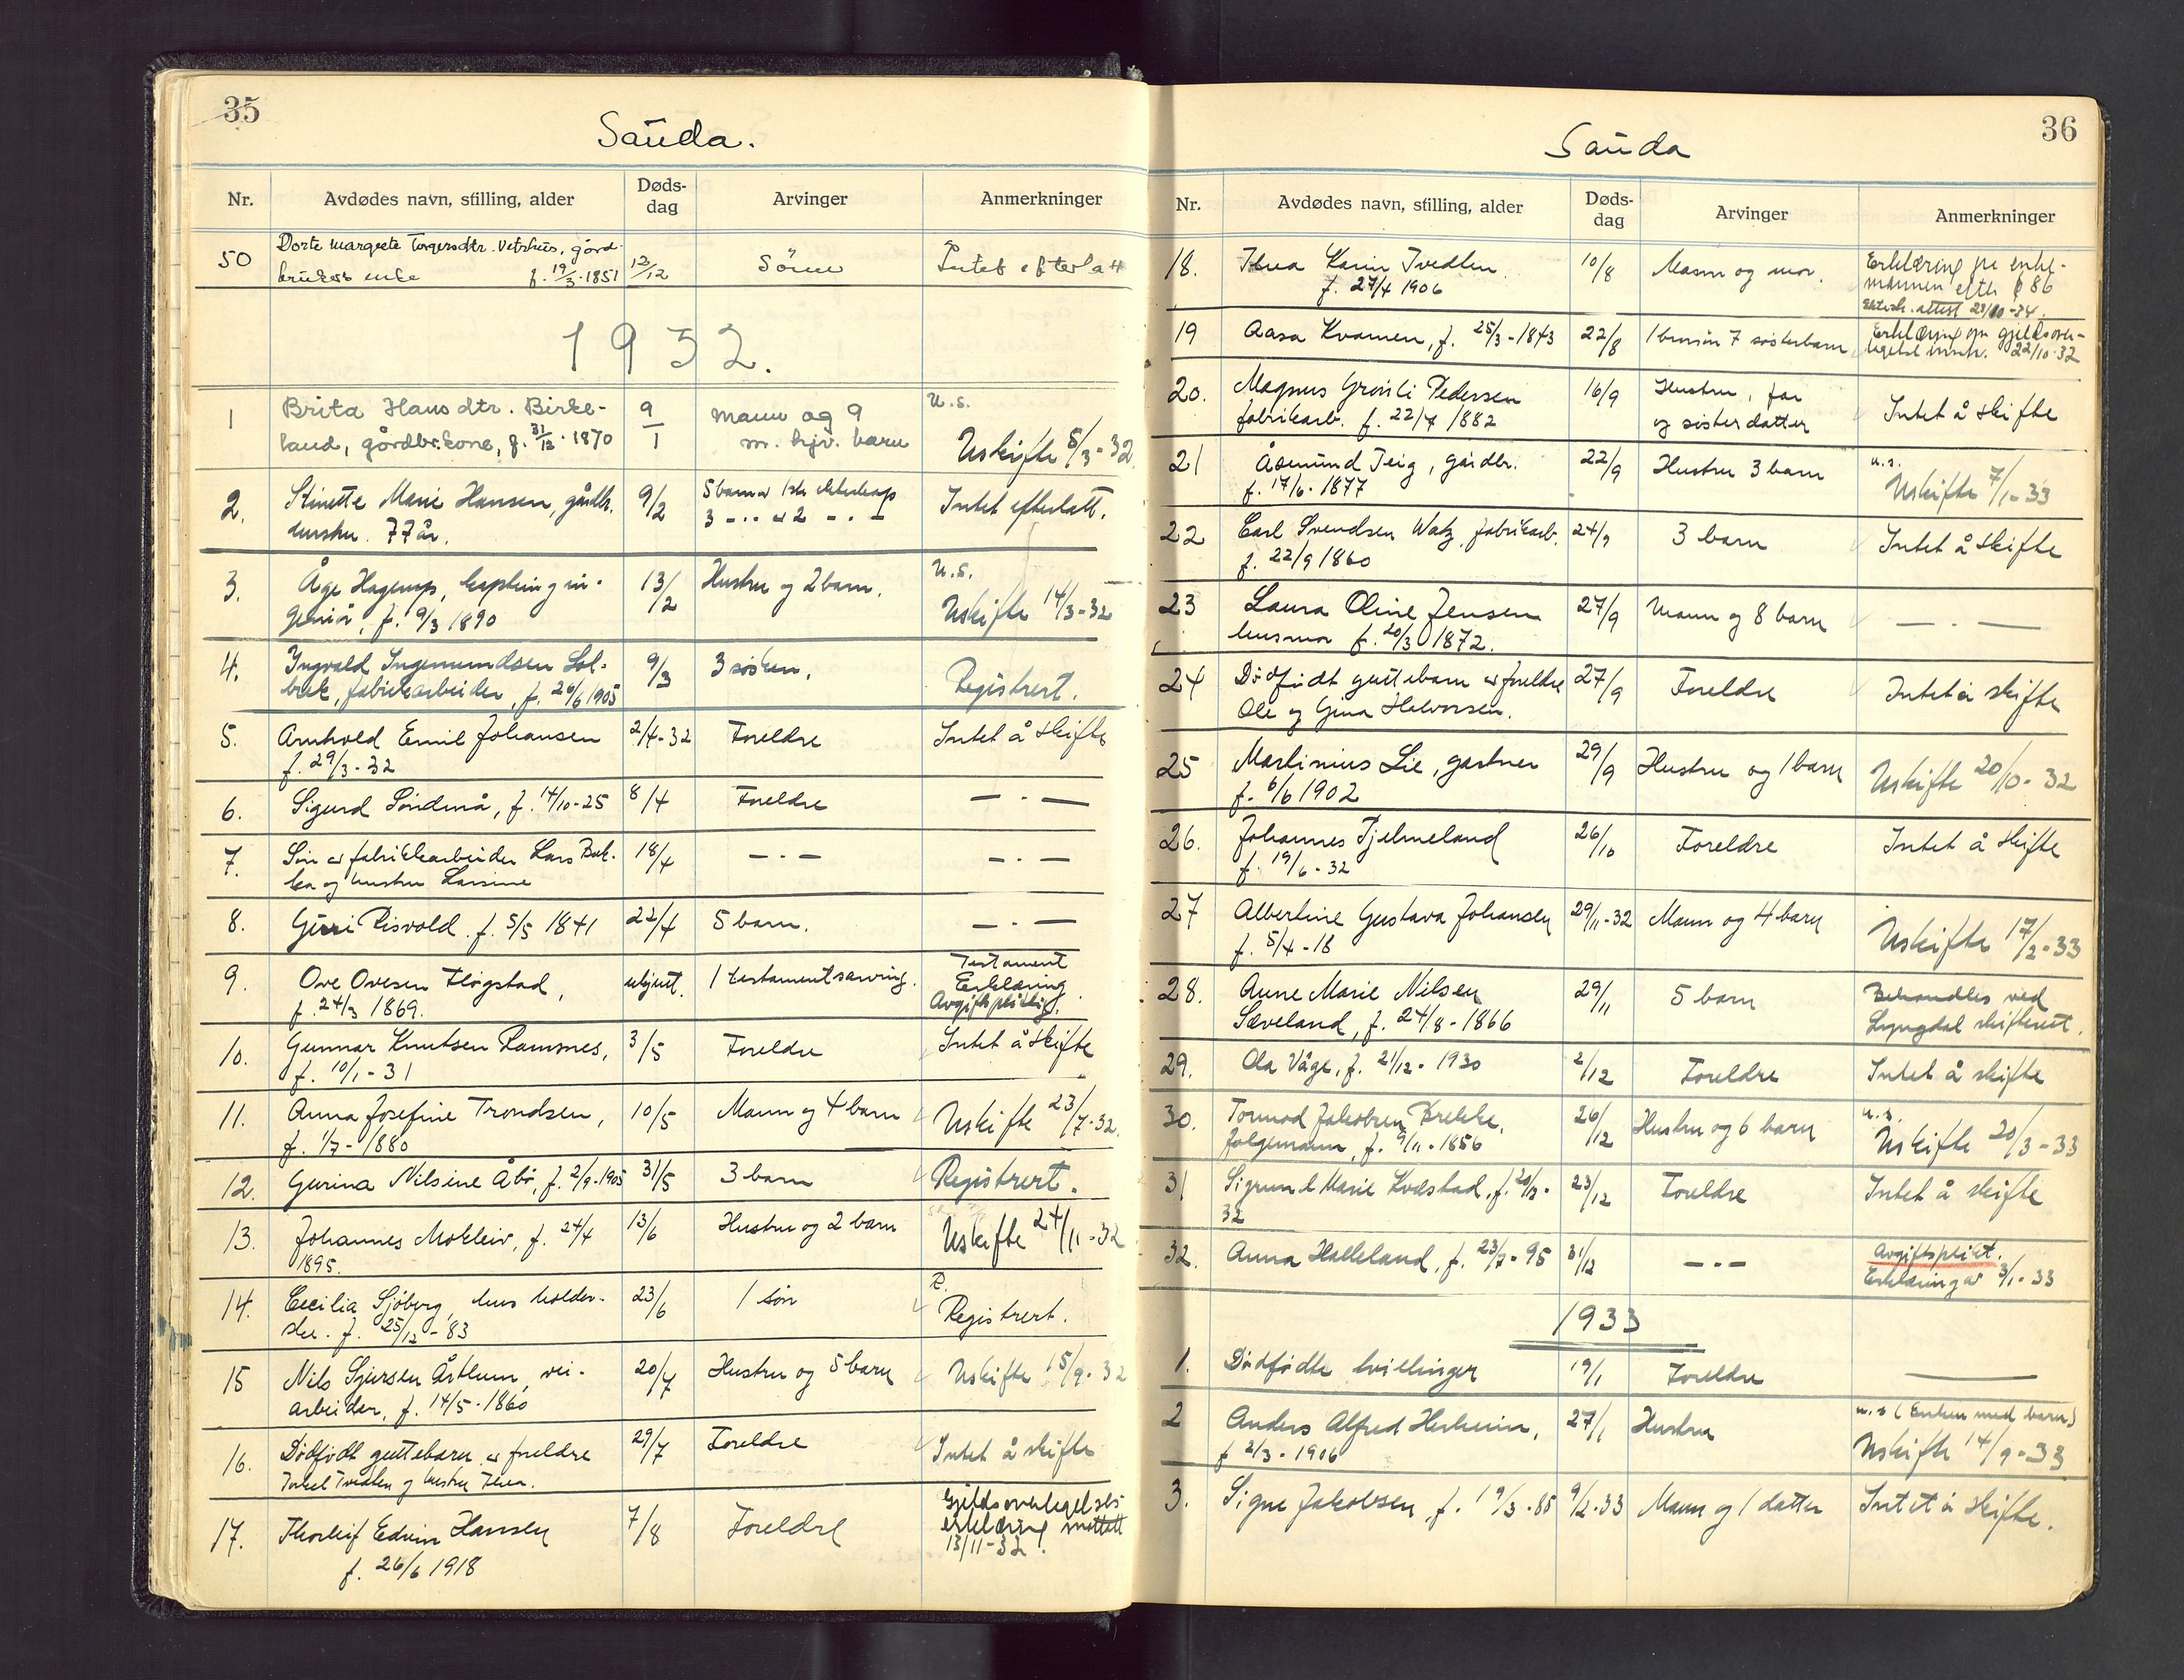 35
Sauda.
Nr. Avdødes navn, stilling, alder Døds-dag Arvinger Anmerkninger
50 Dorte Margrete Torgersdtr. Vetrhus, gård-
brukers enke f. 19/3-1851 12/12 Söner Intet efterlatt
1932.
1 Brita Hansdtr. Birke- 9/1 mann og 9 u.s.
land, gårdbr.kone, f. 31/12-1870 m. hjv. barn Uskifte 5/3-32
2. Stinette Marie Hansen, gårdbr. 9/2 5 barn av 1ste ekteskap Intet efterlatt.
hustru. 77 år. 3 -..- av 2 -..-
3. Åge Hagerup, kaptein og in- 13/2 Hustru og 2 barn. u.s.
geniør, f. 9/3 1890 Uskifte 14/3-32
4. Ingvald Ingemundsen Sol- 9/3 3 søsken.
brek, fabrikkarbeider, f. 26/6 1905 Registrert.
5. Arnhold Emil Johansen 2/4-32 Foreldre Intet å skifte
f. 29/3-32
6. Sigurd Söndenå, f. 14/10-25 8/4 Foreldre — . —
7. Sön av fabrikkarbeider Lars Bak- 18/4 — . — — . —
ka og hustru Larsine
8. Guri Risvold. f. 5/5 1841 22/4 5 barn. — . —
9. Ove Ovesen Fløgstad, ubijent. 1 testamentsarving. Testament
f. 24/3 1869. Erklæring
Avgiftspliktig.
10. Gunnar Knutsen Ramsnes, 3/5 Foreldre Intet å skifte
f. 10/1-31
11. Anna Josefine Trondsen, 10/5 Mann og 4 barn Uskifte 23/7-32.
f. 1/7-1880
12. Gurina Nilsine Åbö, f. 2/9-1905 31/5 3 barn Registrert.
13. Johannes Mokleiv, f. 24/4 13/6 Hustru og 2 barn Uskifte 24/11-32
1895.
14. Cecilia Sjöberg, hus holder- 23/6 1 sön R.
ske. f. 25/12-83 Registrert.
15 Nils Sjursen Årthun, vei- 20/7 Hustru og 5 barn Uskifte 15/9-32
arbeider, f. 14/5-1860
16. Dødfødt guttebarn av foreldre 29/7 Foreldre Intet å skifte
Torkel Tvedten og hustru Thea.
17. Thorleif Edvin Hansen 7/8 Foreldre Gjeldsovertagelses
f. 26/6 1918 erklæring mottatt
13/11-32.
36
Sauda
Nr. Avdødes navn, stilling, alder Døds-dag Arvinger Anmerkninger
18. Thea Karin Tvedten. 10/8 Mann og mor. Erklæring fra enke-
f. 27/4 1906 mannen efter § 86
attest 23/10-34.
19 Aasa Kvamen, f. 25/3-1843 22/8 7 søsterbarn Erklæring om gjeldsover-
tagelse 22/10-32
20. Magnus Grönli Pedersen 16/9 Hustru, far Intet å skifte
fabrikarb. f. 22/7 1882 og søsterdatter
21 Åsmund Teig, gårdbr. 22/9 Hustru 3 barn u.s.
f. 17/6-1877 Uskifte 7/1-33
22 Carl Svendsen Watz, fabrikarb. 24/9 3 barn Intet å skifte
f. 22/9 1860
23 Laura Oline Jensen 27/9 Mann og 8 barn — . —
husmor f. 20/3 1872.
24 Dødfødt guttebarn av foreldre 27/9 Foreldre Intet å skifte
Ole og Gina Halvorsen.
25 Martinius Lie, gartner 29/9 Hustru og 1 barn Uskifte 20/10-32
f. 6/6 1902
26. Johannes Tjelmeland 26/10 Foreldre Intet å skifte
f. 19/6-32
27 Albertine Gustava Johansen 29/11-32 Mann og 4 barn Uskifte 17/2-33
f. 5/4-18
28. Anne Marie Nilsen 29/11 5 barn Behandles ved
Sæveland, f. 24/8-1866 Lyngdal skifterett.
29. Ola Våge, f. 21/12-1930 2/12 Foreldre Intet å skifte
30. Tormod Jakobsen Brekke, 26/12 Hustru og 6 barn u.s.
folgemann, f. 9/11-1856 Uskifte 20/3-33
31 Sigrund Marie Kvæstad, f. 20/12- 23/12 Foreldre Intet å skifte
32
32. Anna Halleland, f. 23/7-95 31/12 — - — Avgiftsplikt.
Erklæring av 3/1-33
1933
1. Dödfödte tvillinger 19/1 Foreldre ———
2 Anders Alfred Herheim, 27/1 Hustru u.s (Enken med barn)
f 2/3-1906 Uskifte 14/9-33
3. Signe Jakobsen, f. 19/3-85 9/2-33 Mann og 1 datter Intet å skifte.